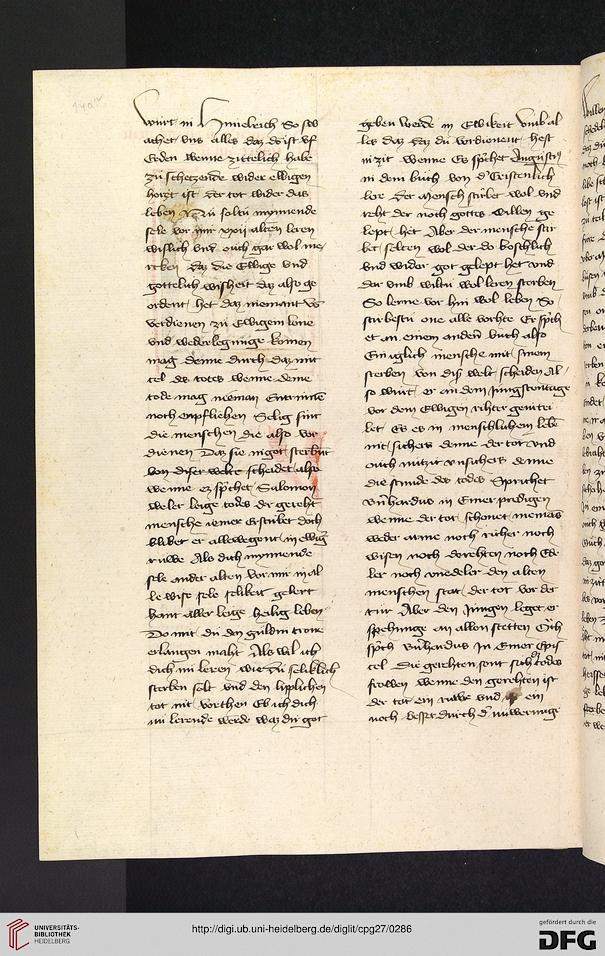 wurt in Himelrich So sch
achet vns alles daz do ist vf
Erden wenne zittelich habe
zu schetzende wider ewigen
hort ist der tot wider das
leben
sele vor mir alten leren
wislich vnd ouch gar wol me
rken daz die Ewige vnd
gottelich wisheit daz also ge
ordent het daz niemant
verdienen zu Ewigem lone
vnd wederlegunge komen
mag denne durch daz mit
tel des totes wenne deme
tode mag nieman Entrinnen
noch enpfliehen Selig sint
die menschen die also ver
dienen Daz sie in got sterbent
von diser welte scheident also
wenne er sprichet Salomon
welre leige todes der gereht
mensche iemer Erstirbet doch
blibet er allewegent in ewiger
ruwe Also dich mynnende
sele ander alten vor mir in al
le wise sele selikeit gelert
hant aller leige heilig leben
Do mit du den guldin trone
erlangen maht Also wil ich
dich nu leren wie du seliklich
sterben solt vnd den liplichen
tot nit vorhten Eb ich dich
nu lerende werde waz dir got
geben werde in Ewikeit vmb al
les daz daz du verdienent hest
in zit wenne Es sprichet Augustinus
in dem buch von der Cristenlich
lere Der mensch stirbet wol vnd
reht der noch gottes willen ge
lept het Aber der mensche stir
bet selten wol der do boshlich
vnd wider got gelept het vnd
dar vmb wiltu wol leren sterben
So lerne vor hin wol leben So
stirbestu one alle vorhte Er sprich
et an einem andern buch also
Ein iglich mensche mit sinem
sterben von dis welt scheiden Al
so wurt er an dem Jungestentage
vor dem Ewigen rihter geurtei
let Es es in menschlichem leben
nit sichers denne der tot vnd
ouch nutzit vnsichers denne
die stunde des todes Sprichet
Bernhardus in Einer predigen
wenne der tot schonet niemans
weder arme noch richer noch
wisen noch dorehten noch Ede
ler noch vnedeler den alten
menschen stat der tot vor der
tur Aber den Jungen leget er
an allen stetten Och
sprich Bernhardus in Einer Epis
tel Die gerehten sont sich des todes
frowen wenne den gerehten ist
der tot ein ruwe vnd ein
noch besser durch der nuwerunge
UNIVERSITÄTS-
BIBLIOTHEK
HEIDELBERG
http://digi.ub.uni-heidelberg.de/diglit/cpg27/0286
gefördert durch die
DFG